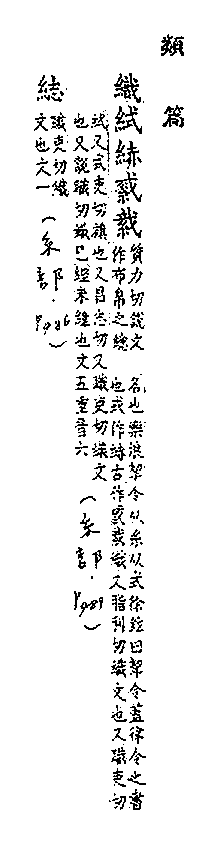 類篇
織䋐紌𢧜𢧤 質力切說文作布帛之總名也樂浪挈令从糸从式徐鉉曰挈令蓋律令之書也或作紌古作𢧜𢧤織又脂利切織文也又職吏切
䋐又式吏切旗也又昌志切又職吏切織文也又說織切織已經未緯也文五重音六（糸部．P989）
綕 職吏切織文也文一（糸部．P986）